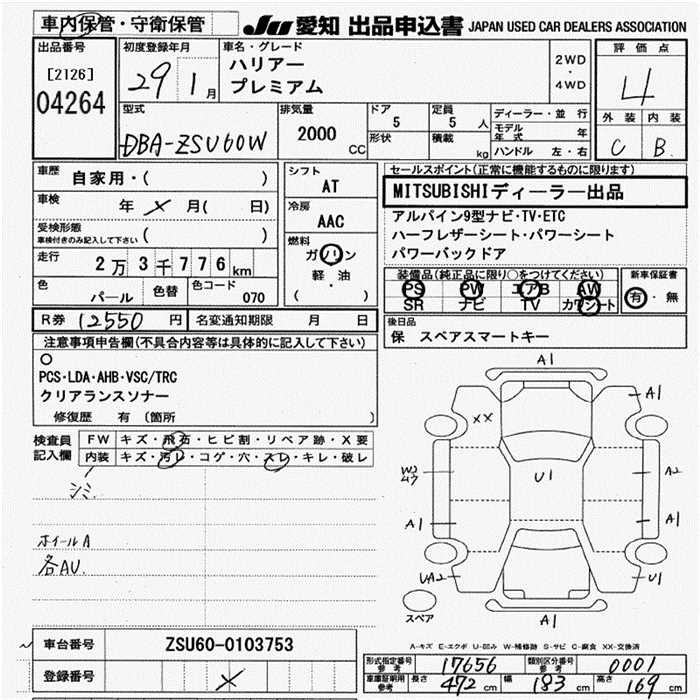 車内保管・守衛保管
JU 愛知 出品申込書 JAPAN USED CAR DEALERS ASSOCIATION
出品番号
[2126]
04264
初度登録年月
29 1月
車名・グレード
ハリアー
プレミアム
2WD
・
4WD
評価点
4
外装 内装
C B
型式
DBA-ZSU60W
排気量
2000 CC
ドア 5
定員 5 人
形状
積載 kg
ディーラー・並行
モデル年式 年
ハンドル 左・右
車歴 自家用・( )
車検 年 × 月( 日)
受検形態
車検付きのみ記入して下さい ( )
走行 2万3千776km
色 パール
色替
色コード 070
シフト
AT
冷房
AAC
燃料
ガソリン
・
軽・油
( )
セールスポイント(正常に機能するものに限ります)
MITSUBISHIディーラー出品
アルパイン9型ナビ・TV・ETC
ハーフレザーシート・パワーシート
パワーバックドア
装備品(純正品に限り○をつけてください)
PS PW エアB AW
SR ナビ TV カワシート
新車保証書
有・無
R券 12550 円
名変通知期限 月 日
後日品
保 スペアスマートキー
注意事項申告欄(不具合内容等は具体的に記入して下さい)
○
PCS・LDA・AHB・VSC/TRC
クリアランスソナー
修復歴 有 (箇所 )
検査員記入欄
FW キズ・飛石・ヒビ割・リペア跡・X要
内装 キズ・汚レ・コゲ・穴・スレ・キレ・破レ
シミ
ホイールA
各AU.
A1
A1
XX
U1
A2
A1
A1
UA2
U1
A1
スペア
A-キズ E-エクボ U-凹み W-補修跡 S-サビ C-腐食 XX-交換済
車台番号 ZSU60-0103753
登録番号 ×
形式指定番号参考 17656
類別区分番号参考 0001
車庫証明用参考 長さ 472 cm 幅 183 cm 高さ 169 cm